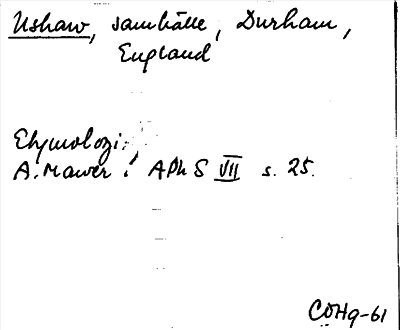 Ushaw, samhälle, Durham,
England
Etymologi:
A. Mawer i APhS VII s. 25.
COHg-61